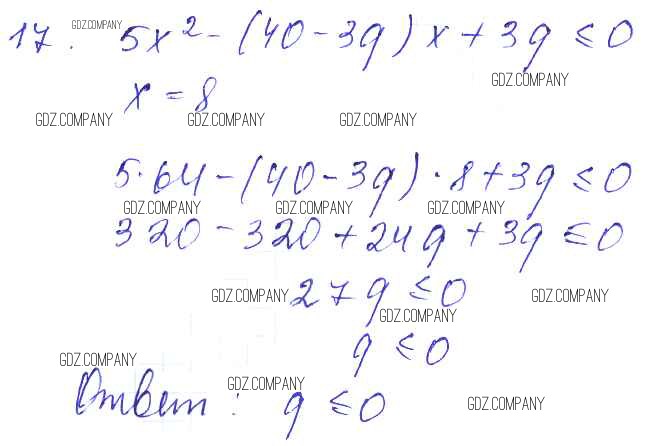 17. 5x² - (40 - 3q)x + 3q ≤ 0
x = 8
5·64 - (40 - 3q)·8 + 3q ≤ 0
320 - 320 + 24q + 3q ≤ 0
27q ≤ 0
q ≤ 0
Ответ: q ≤ 0
GDZ.COMPANY
GDZ.COMPANY
GDZ.COMPANY
GDZ.COMPANY
GDZ.COMPANY
GDZ.COMPANY
GDZ.COMPANY
GDZ.COMPANY
GDZ.COMPANY
GDZ.COMPANY
GDZ.COMPANY
GDZ.COMPANY
GDZ.COMPANY
GDZ.COMPANY